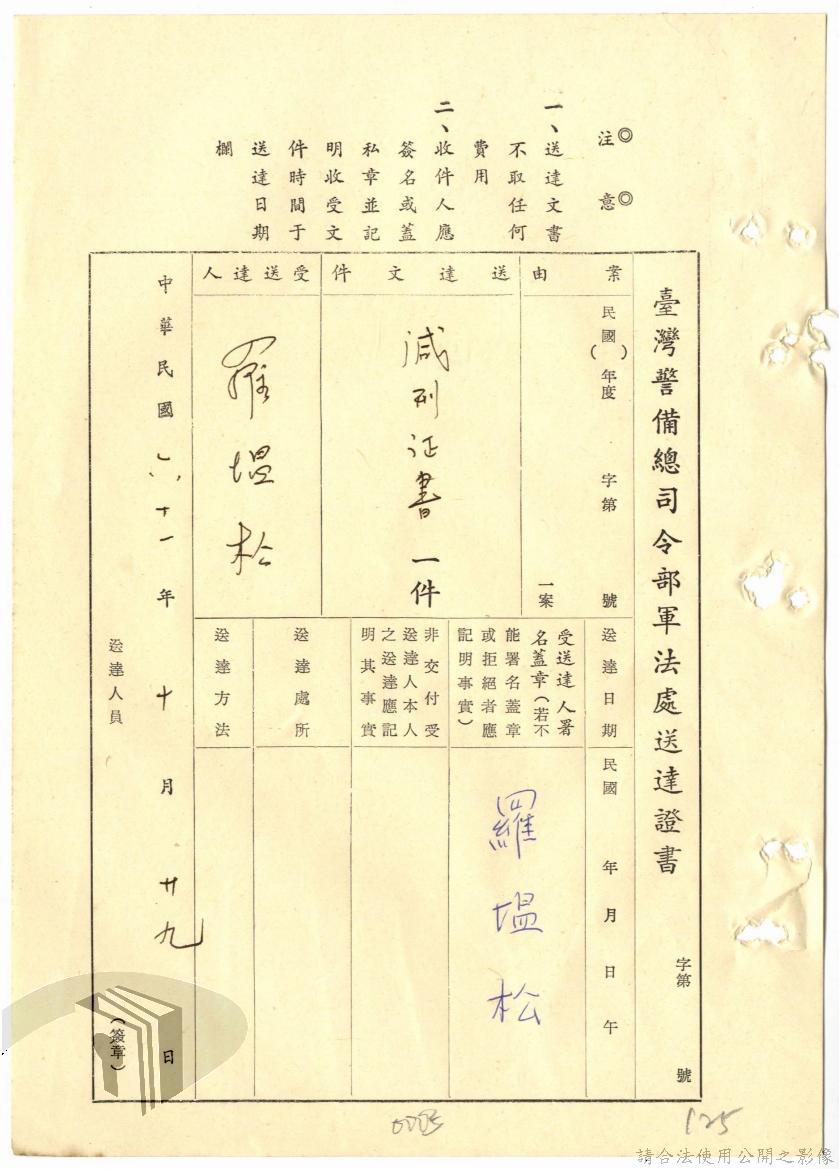 ◎注　意◎
一、送達文書
不取任何
費用
二、收件人應
簽名或蓋
私章並記
明收受文
件時間于
送達日期
欄
臺灣警備總司令部軍法處送達證書　字第　號
案由
民國（　）年度　字第　號
一案
送達文件
減刑证書一件
受送達人
羅塭松
送達日期
民國　年　月　日　午
受送達人署
名蓋章（若不
能署名蓋章
或拒絕者應
記明事實）
羅塭松
非交付受
送達人本人
之送達應記
明其事實
送達處所
送達方法
中華民國六十一年十月廿九日
送達人員　（簽章）
125
請合法使用公開之影像